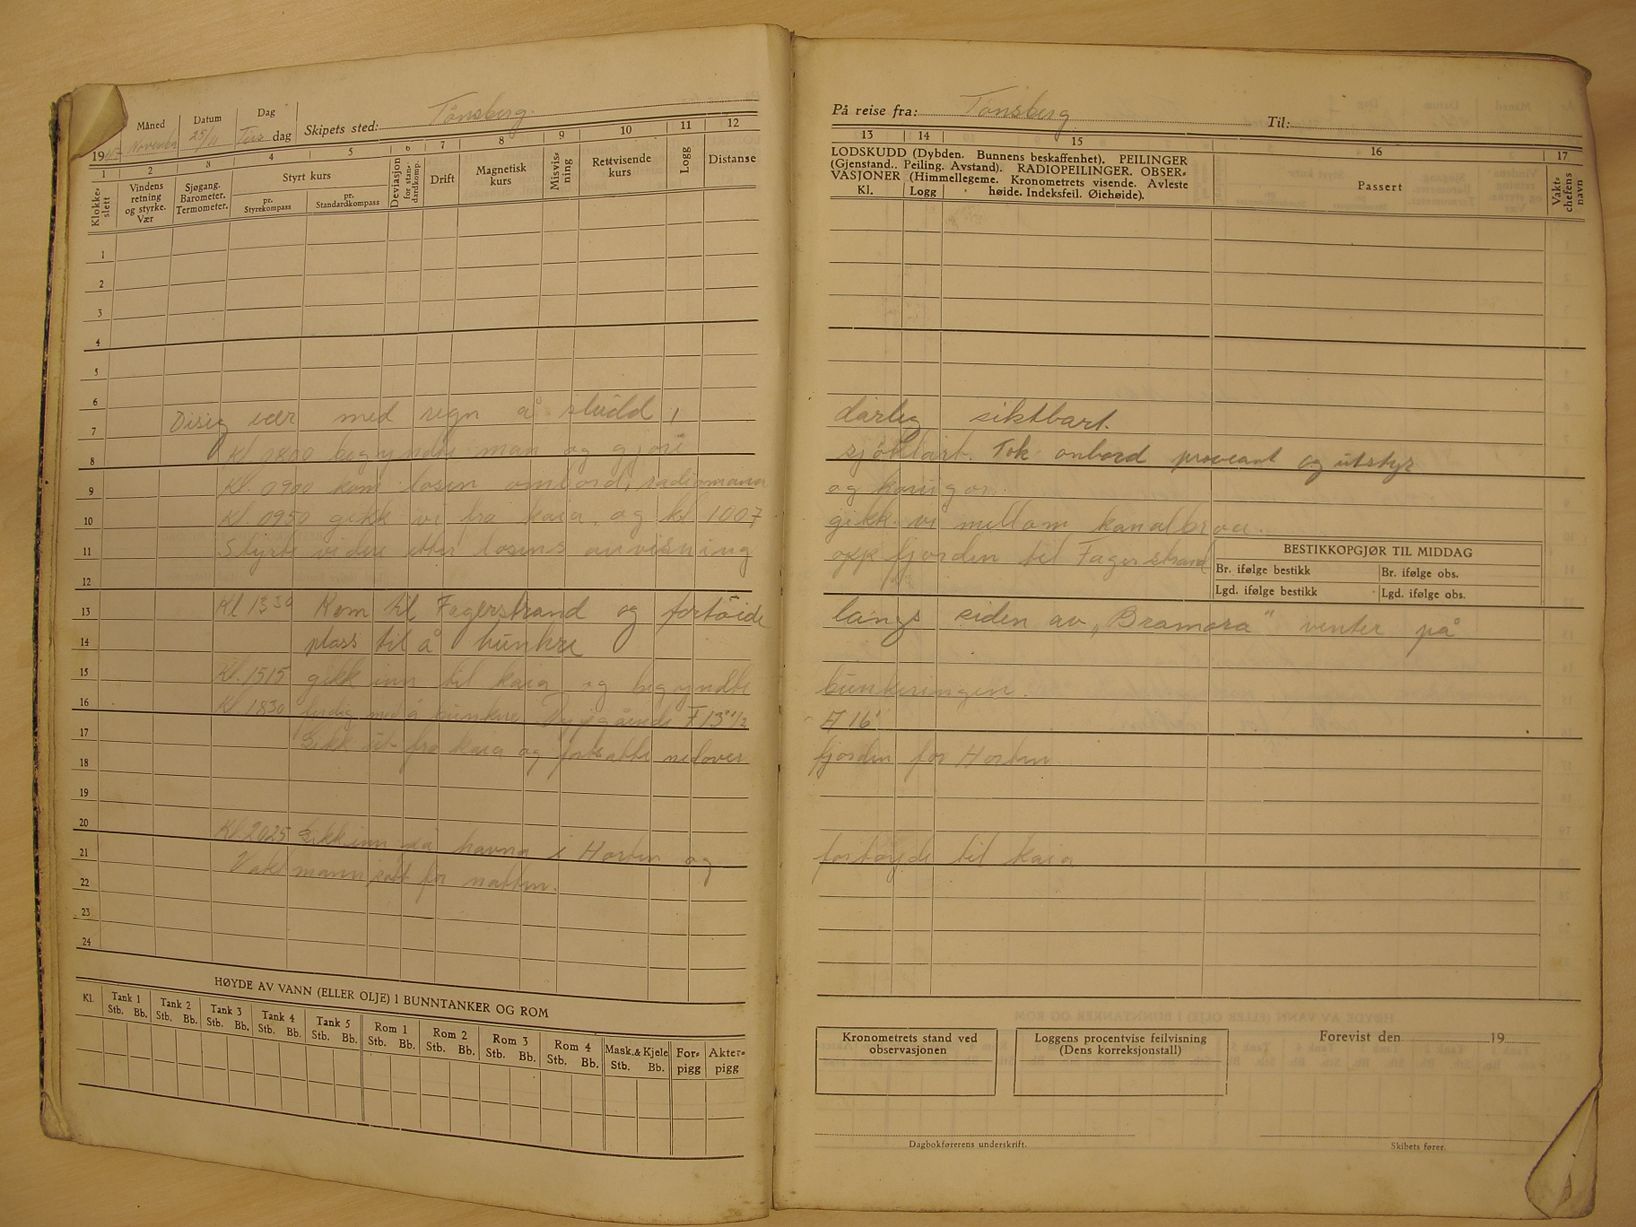 Måned Datum Dag
19 November 25/11 Tors dag Skipets sted: Tönsberg.
1 2 3 4 5 6 7 8 9 10 11 12
Klokkeslett
Vindens retning og styrke. Vær
Sjøgang. Barometer. Termometer.
Styrt kurs
pr. Styrekompass
pr. Standardkompass
Deviasjon for standardkomp.
Drift
Magnetisk kurs
Misvisning
Rettvisende kurs
Logg
Distanse
1
2
3
4
5
6
7 Disig vær med regn å sludd,
8 Kl. 0800 begyndte man og gjöre
9 Kl. 0900 kom losen ombord, radiomann
10 Kl. 0950 gikk vi fra kaia, og kl 1007
11 Styrte videre etter losens anvisning
12
13 Kl 1330 Kom til Fagerstrand og fortöide
14 plass til å bunkre
15 Kl. 1515 gikk inn til kaia og begyndte
16 Kl 1830 ferdig med å bunkre. Dypgående F 13" 1/2
17 Gikk ut fra kaia og fortsatte nedover
18
19
20
21 Kl. 2025 Gikk inn på havna i Horten og
22 Vaktmann satt for natten.
23
24
HØYDE AV VANN (ELLER OLJE) I BUNNTANKER OG ROM
Kl. Tank 1 Tank 2 Tank 3 Tank 4 Tank 5 Rom 1 Rom 2 Rom 3 Rom 4 Mask.& Kjele Forpigg Akterpigg
Stb. Bb. Stb. Bb. Stb. Bb. Stb. Bb. Stb. Bb. Stb. Bb. Stb. Bb. Stb. Bb. Stb. Bb. Stb. Bb.
På reise fra: Tönsberg Til:
13 14 15 16 17
LODSKUDD (Dybden. Bunnens beskaffenhet). PEILINGER
(Gjenstand. Peiling. Avstand). RADIOPEILINGER. OBSER-
VASJONER (Himmellegeme. Kronometrets visende. Avleste
Kl. Logg høide. Indeksfeil. Øiehøide).
Passert
Vaktchefens navn
dårlig siktbart.
sjöklart. Tok onbord proveant og utstyr
og
gikk vi mellom kanalbroa.
opp fjorden til Fagerstrand
BESTIKKOPGJØR TIL MIDDAG
Br. ifølge bestikk Br. ifølge obs.
Lgd. ifølge bestikk Lgd. ifølge obs.
langs siden av „Bramora" venter på
bunkeringen.
A 16'
fjorden for Horten
fortöyde til kaia
Kronometrets stand ved observasjonen
Loggens procentvise feilvisning (Dens korreksjonstall)
Forevist den 19
Dagbokførerens underskrift.
Skibets fører.